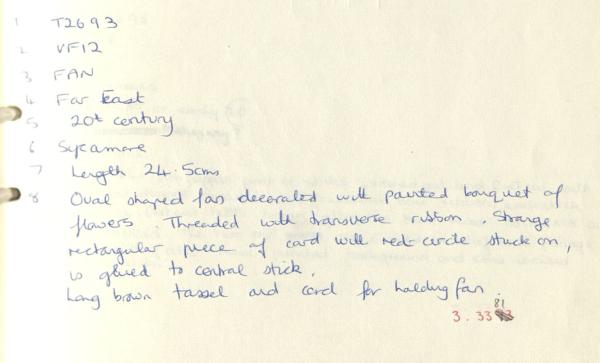 1 T2693
2 VF12
3 FAN
4 Far East
5 20th century
6 Sycamore
7 Length 24.5cms
8 Oval shaped fan decorated with painted bouquet of
flowers. Threaded with transverse ribbon. Strange
rectangular piece of card with red circle stuck on,
is glued to central stick.
Long brown tassel and cord for holding fan.
81
3.33